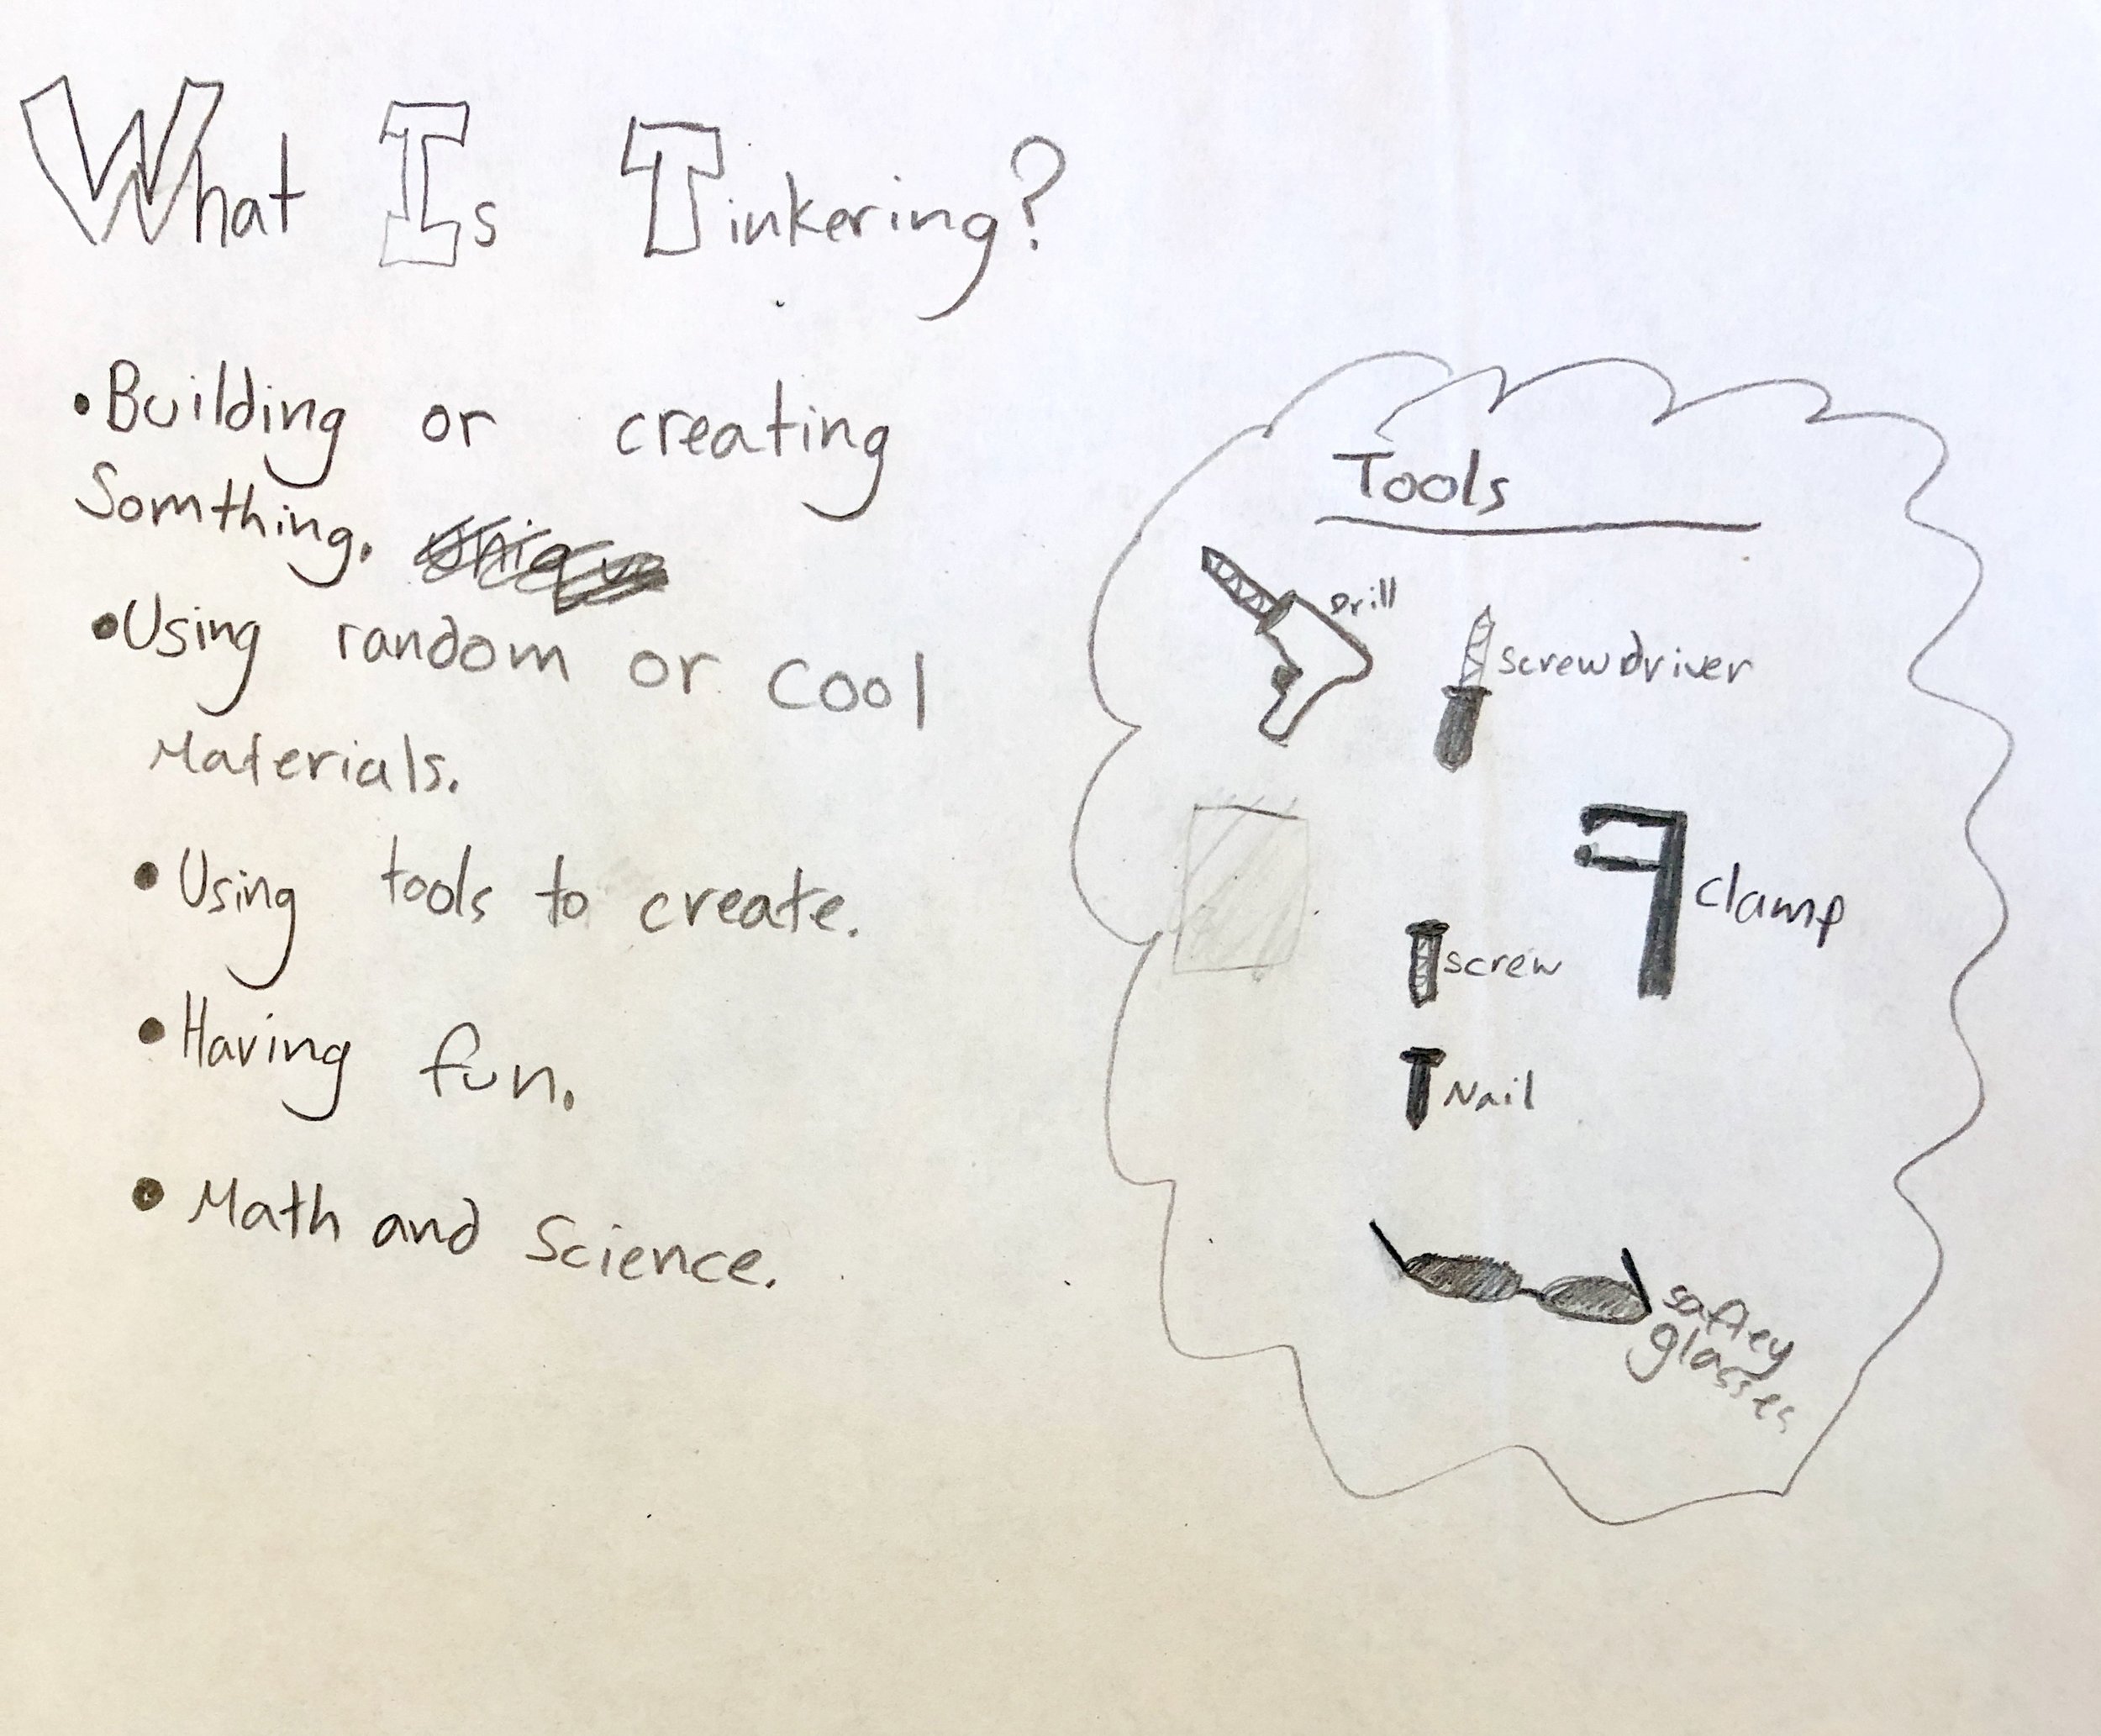 What Is Tinkering?
•Building or creating
Somthing.
•Using random or cool
Materials.
• Using tools to create.
• Having fun.
• Math and Science.
Tools
Drill
screwdriver
clamp
screw
Nail
saftey
glasses